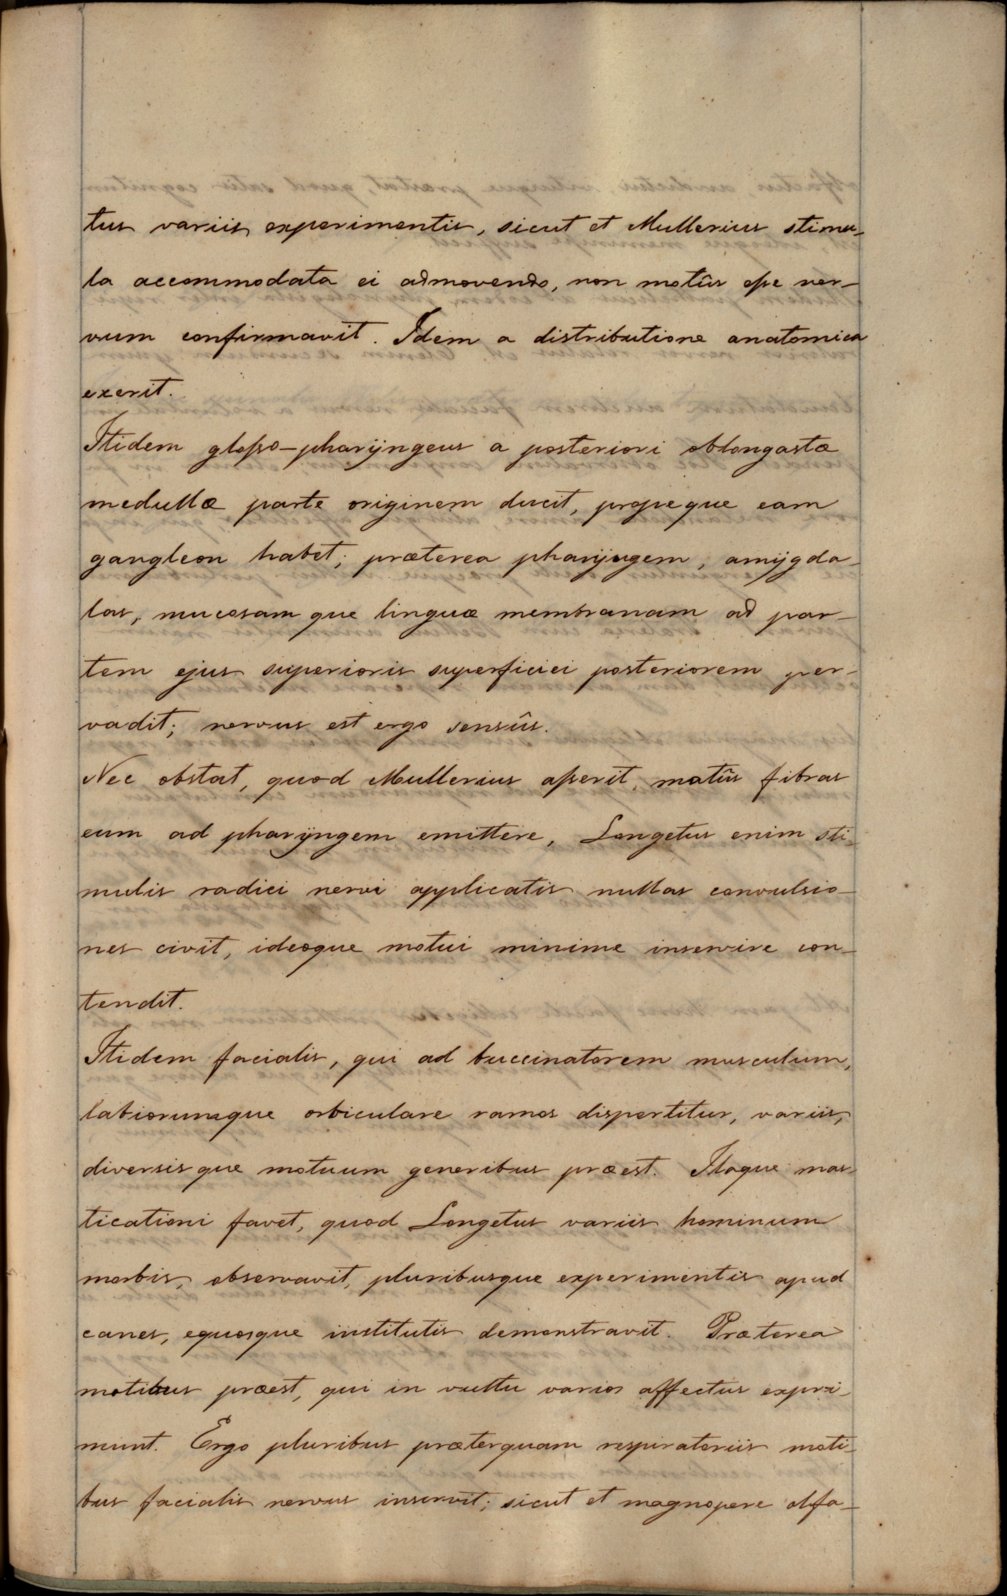 tus variis experimentis, sicut et Mullerius stimu-
la accommodata ei admovendo, non motûs esse ner-
vum confirmavit. Idem a distributione anatomica
exerit.
Itidem glosso-pharÿngeus a posteriori oblongatæ
medullæ parte originem ducit, propeque eam
gangleon habet; præterea pharÿngem, amÿgda-
las, mucosamque linguæ membranam ad par-
tem ejus superioris superficiei posteriorem per-
vadit; nervus est ergo sensûs.
Nec obstat, quod Mullerius asserit, motûs fibras
eum ad pharÿngem emittere, Longetus enim sti-
mulis radici nervi applicatis nullas convulsio-
nes civit, ideoque motui minime inservire con-
tendit.
Itidem facialis, qui ad buccinatorem musculum,
labiorumque orbiculare ramos dispertitur, variis,
diversisque motuum generibus præest. Itaque mas-
ticationi favet, quod Longetus variis hominum
morbis, observavit, pluribusque experimentis apud
canes, equosque institutis demonstravit. Præterea
motibus præest, qui in vultu varios affectus expri-
munt. Ergo pluribus præterquam respiratoriis moti-
bus facialis nervus inservit; sicut et magnopere olfa-